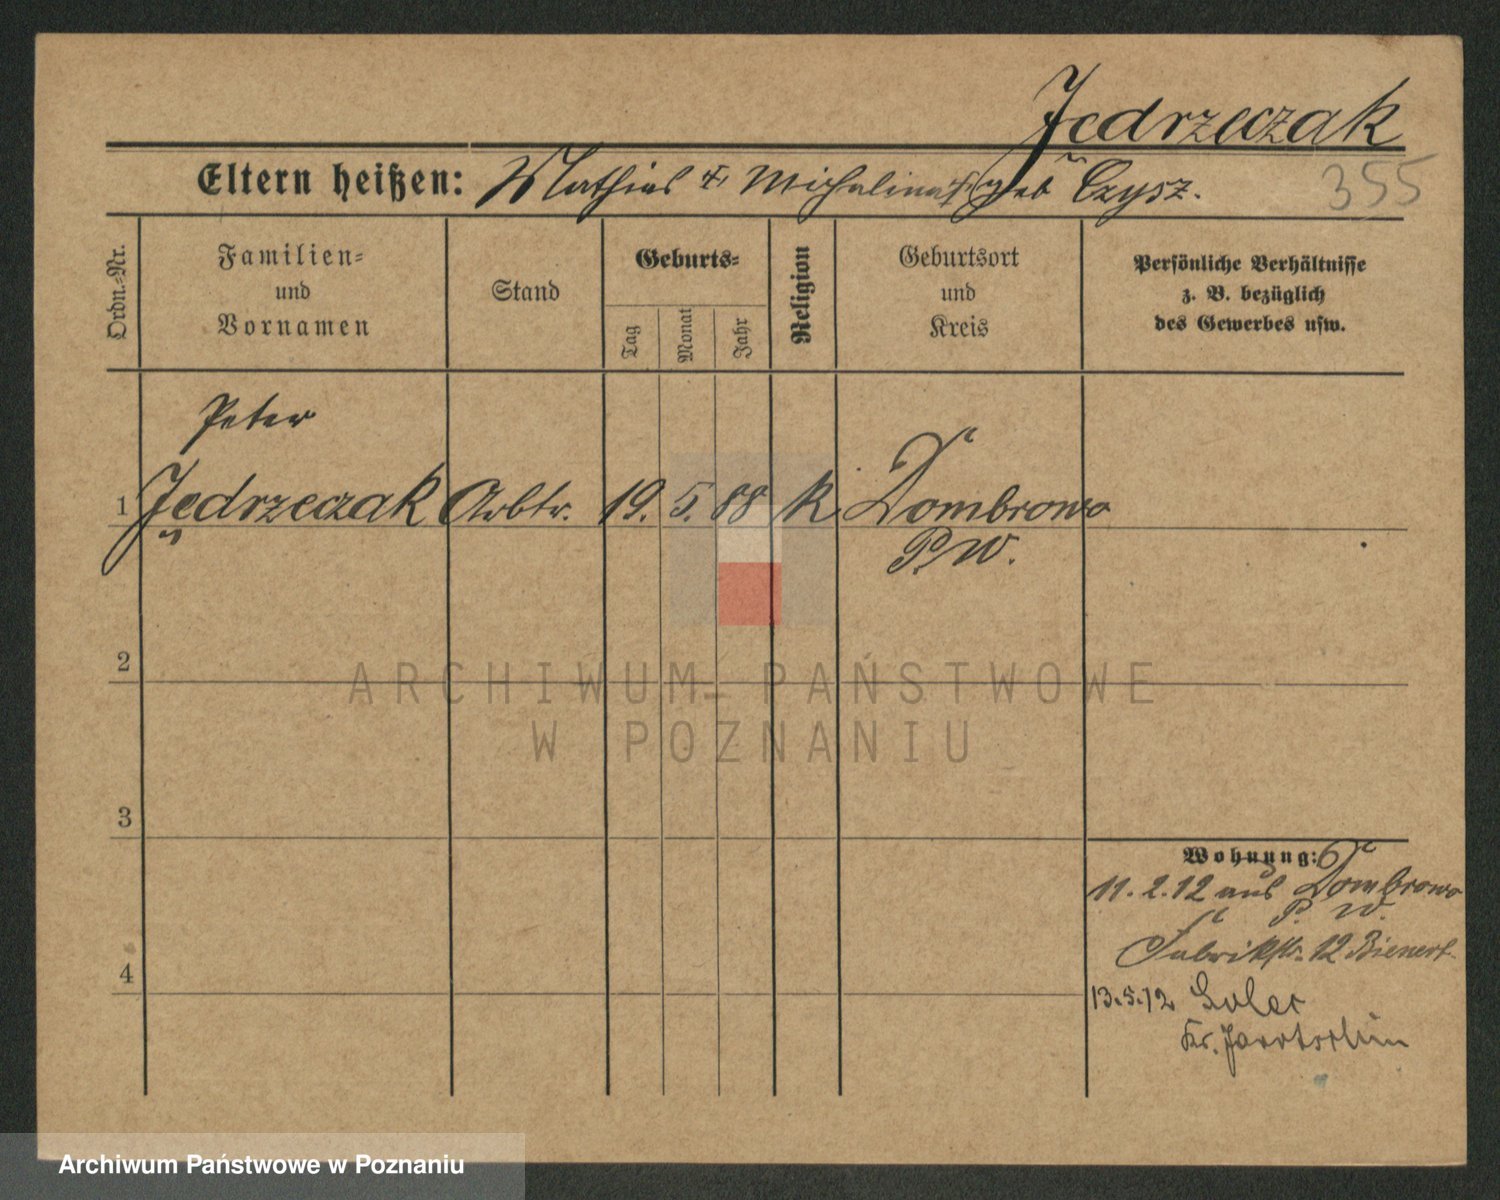 Jędrzeczak
Eltern heißen: Mathias + Michalina geb Czysz.
355
Ordn.=Nr.
Familien=
und
Vornamen
Stand
Geburts=
Tag
Monat
Jahr
Religion
Geburtsort
und
Kreis
Persönliche Verhältnisse
z. B. bezüglich
des Gewerbes usw.
Peter
1 Jędrzeczak Arbtr. 19. 5. 88 K Dombrowo
P. W.
2
3
4
Wohnung:
11. 2. 12 aus Dombrowo
P. W.
Fabrikstr. 12 Bienert
13.5.12
Kr. Jarotschin
ARCHIWUM PAŃSTWOWE
W POZNANIU
Archiwum Państwowe w Poznaniu